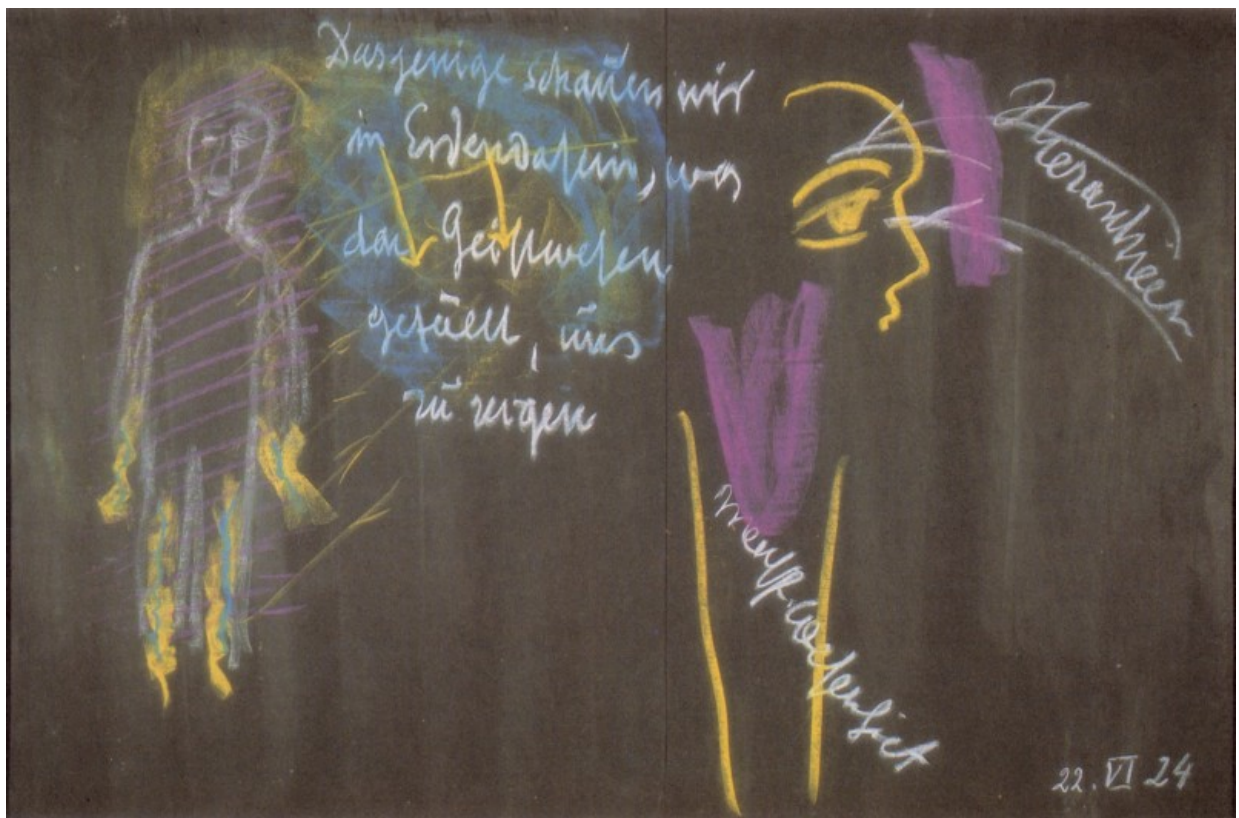 Dasjenige schauen wir
in Erdendasein, was
den Geistwesen
gefällt, uns
zu zeigen
Hierarchieen
22. VI 24